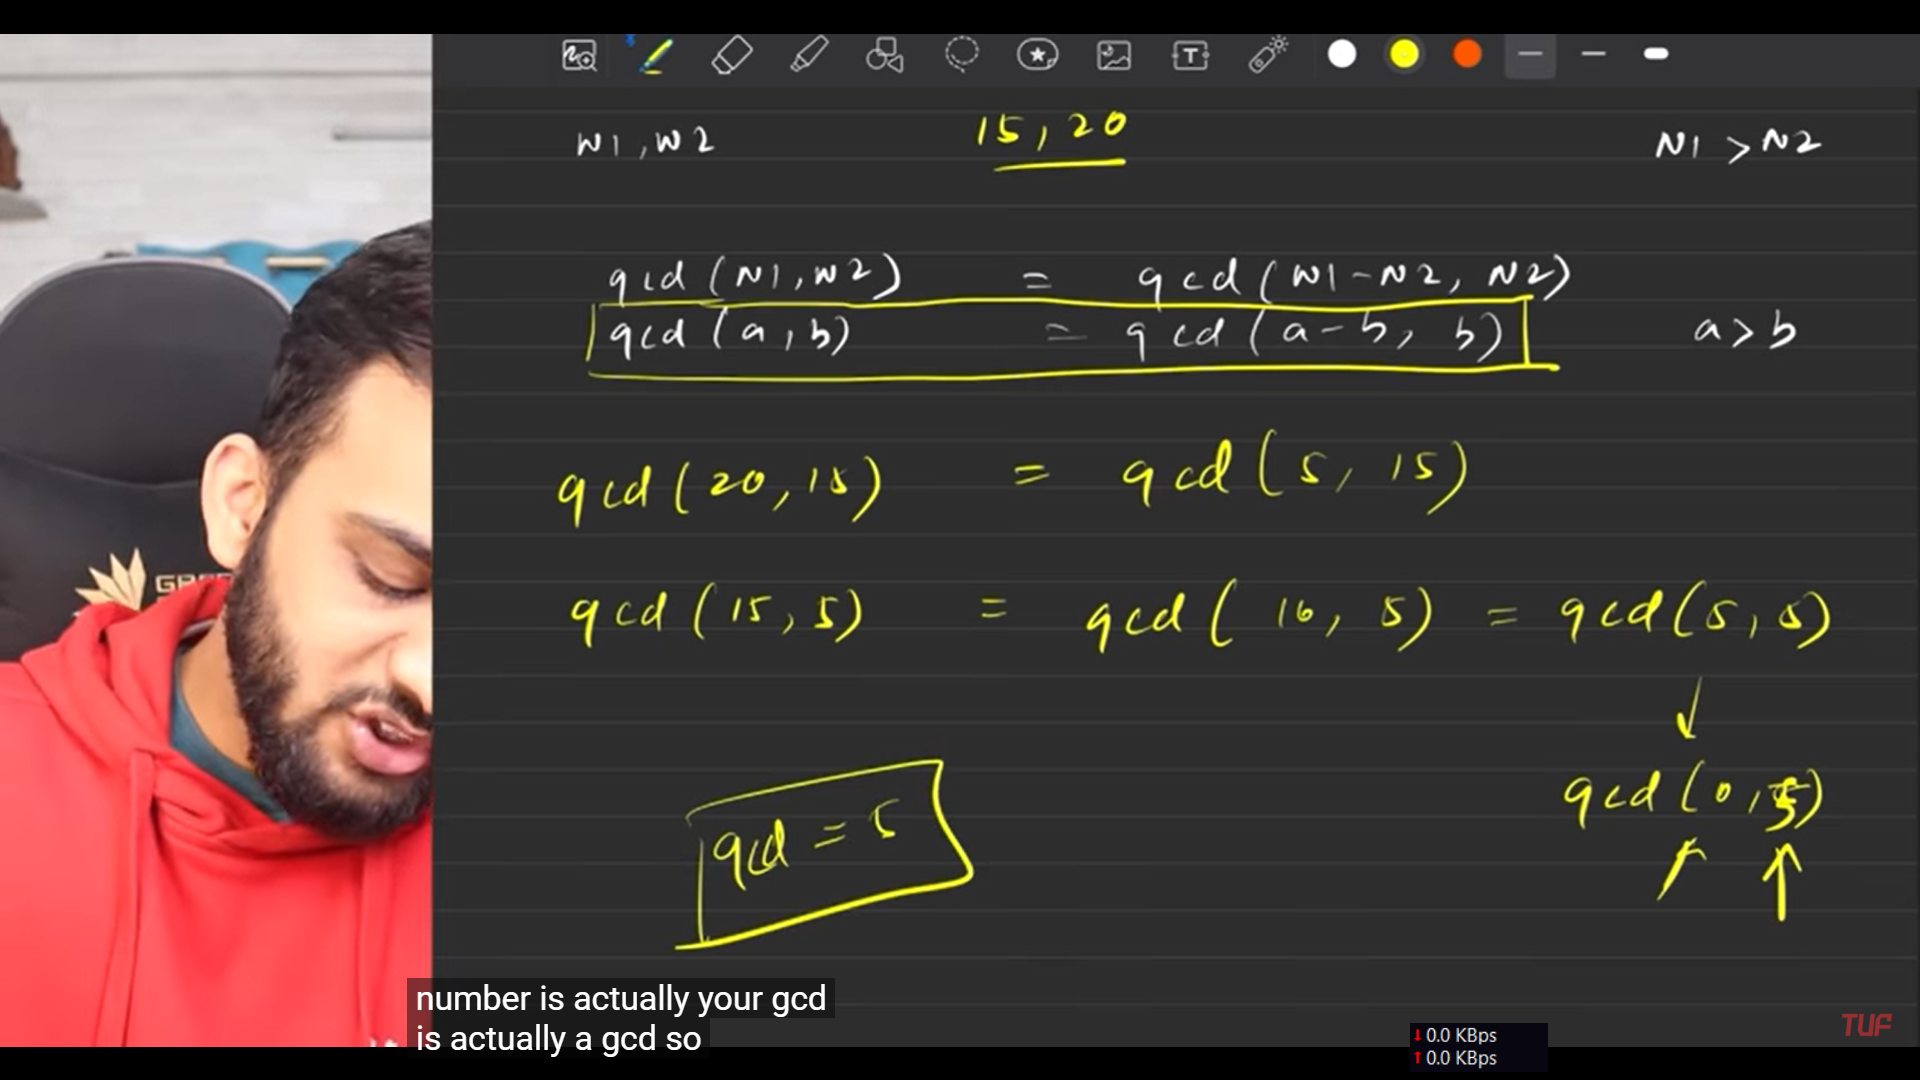 N1, N2 15, 20 N1 > N2
gcd (N1, N2) = gcd (N1 - N2, N2)
gcd (a, b) = gcd (a - b, b) a > b
gcd (20, 15) = gcd (5, 15)
gcd (15, 5) = gcd ( 10, 5) = gcd (5, 5)
gcd (0, 5)
gcd = 5
number is actually your gcd
is actually a gcd so
TUF
↓ 0.0 KBps
↑ 0.0 KBps